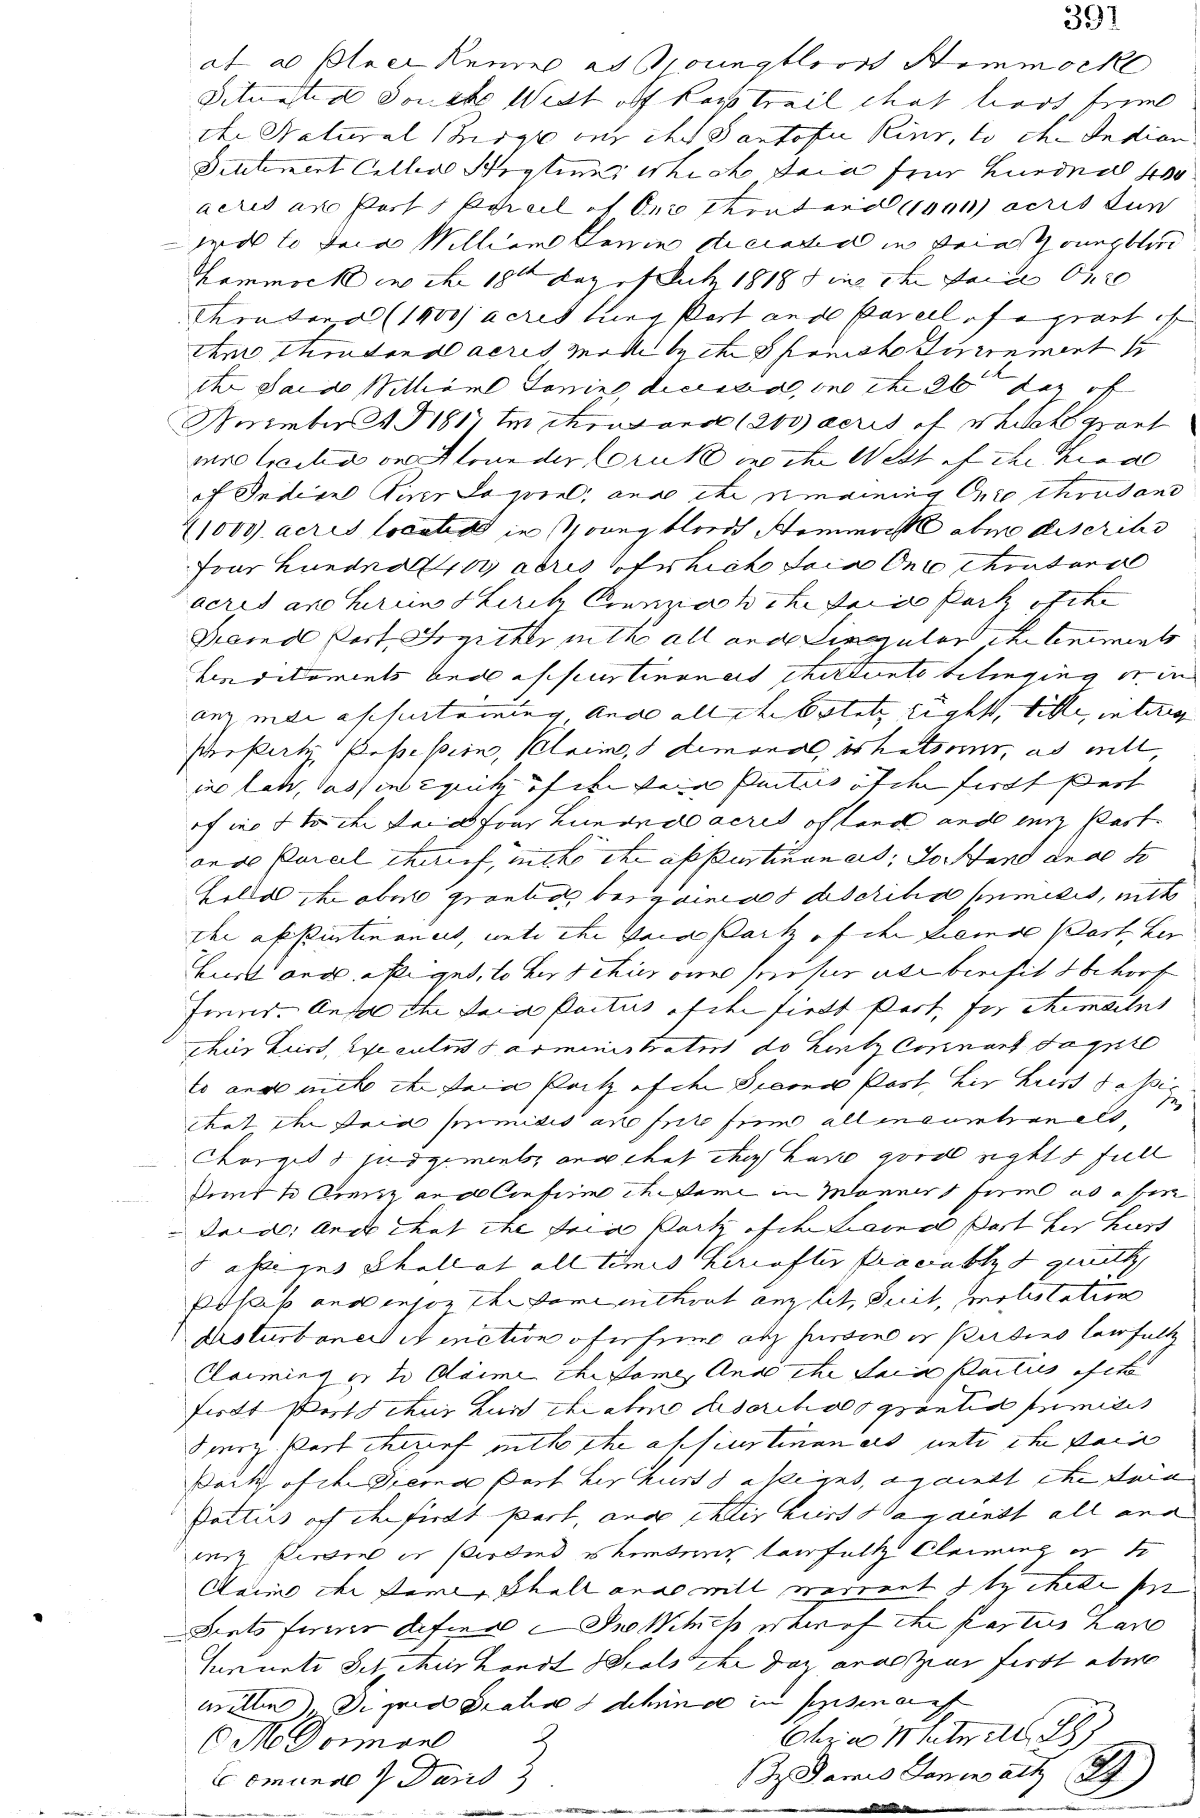 391
at a place Known as Youngbloods Hammock
Situated South West of Kays trail that leads from
the Natural Bridge over the Santafee River, to the Indian
Settlement Called Hogtown; which said four hundred 400
acres are part & parcel of One thousand (1000) acres Sur
veyed to said William Garvin deceased in said Youngblood
hammock on the 18th day of July 1818 & in the said One
thousand (1000) acres being part and parcel of a grant of
three thousand acres made by the Spanish Government to
the Said William Garvin, deceased, on the 26th day of
November AD 1817 two thousand (200) acres of which grant
were located on Flounder Creek on the West of the head
of Indian River Lagoon; and the remaining One thousand
(1000) acres located in Youngbloods Hammock above described
four hundred (400) acres of which said One thousand
acres are herein & hereby Conveyed to the said party of the
Second part, Together with all and Singular the tenements
hereditaments and appurtinances thereunto belonging or in
any wise appurtaining, and all the Estate, right, title, interest
property, possession, Claim, & demand, whatsoever, as well
in law, as in equity of the said parties of the first part
of in & to the said four hundred acres of land and every part
and parcel thereof, with the appurtinances; To Have and to
hold the above granted, bargained & described premises, with
the appurtinances, unto the said party of the Second part, her
heirs and assigns, to her & thier own proper use benefit & behoof
forever. And the said parties of the first part, for themselves
thier heirs, Executors & administrators do hereby Covenant & agree
to and with the said party of the Second part, her heirs & assigns
that the said premises are free from all incumbrances,
Charges & judgements, and that they have good right & full
power to Convey and Confirm the same in Manner & form as afore
said; And that the said party of the Second part her heirs
& assigns Shall at all times hereafter peaceably & quietly
possess and enjoy the same without any let, Suit, molestation
disturbance or eviction of or from any person or persons lawfully
Claiming or to Claim the same, And the said parties of the
first part & their heirs the above described & granted premises
& every part thereof with the appurtinances unto the said
party of the Second part her heirs & assigns, against the said
parties of the first part, and their heirs & against all and
every person or persons whomsoever lawfully Claiming or to
Claim the same, Shall and will warrant & by these pre
sents forever defend In Witness whereof the parties have
hereunto Set their hands & Seals the day and year first above
written, Signed Sealed & delivered in presence of
C McDorman
Whitwell LS
Edmund Davis
By James